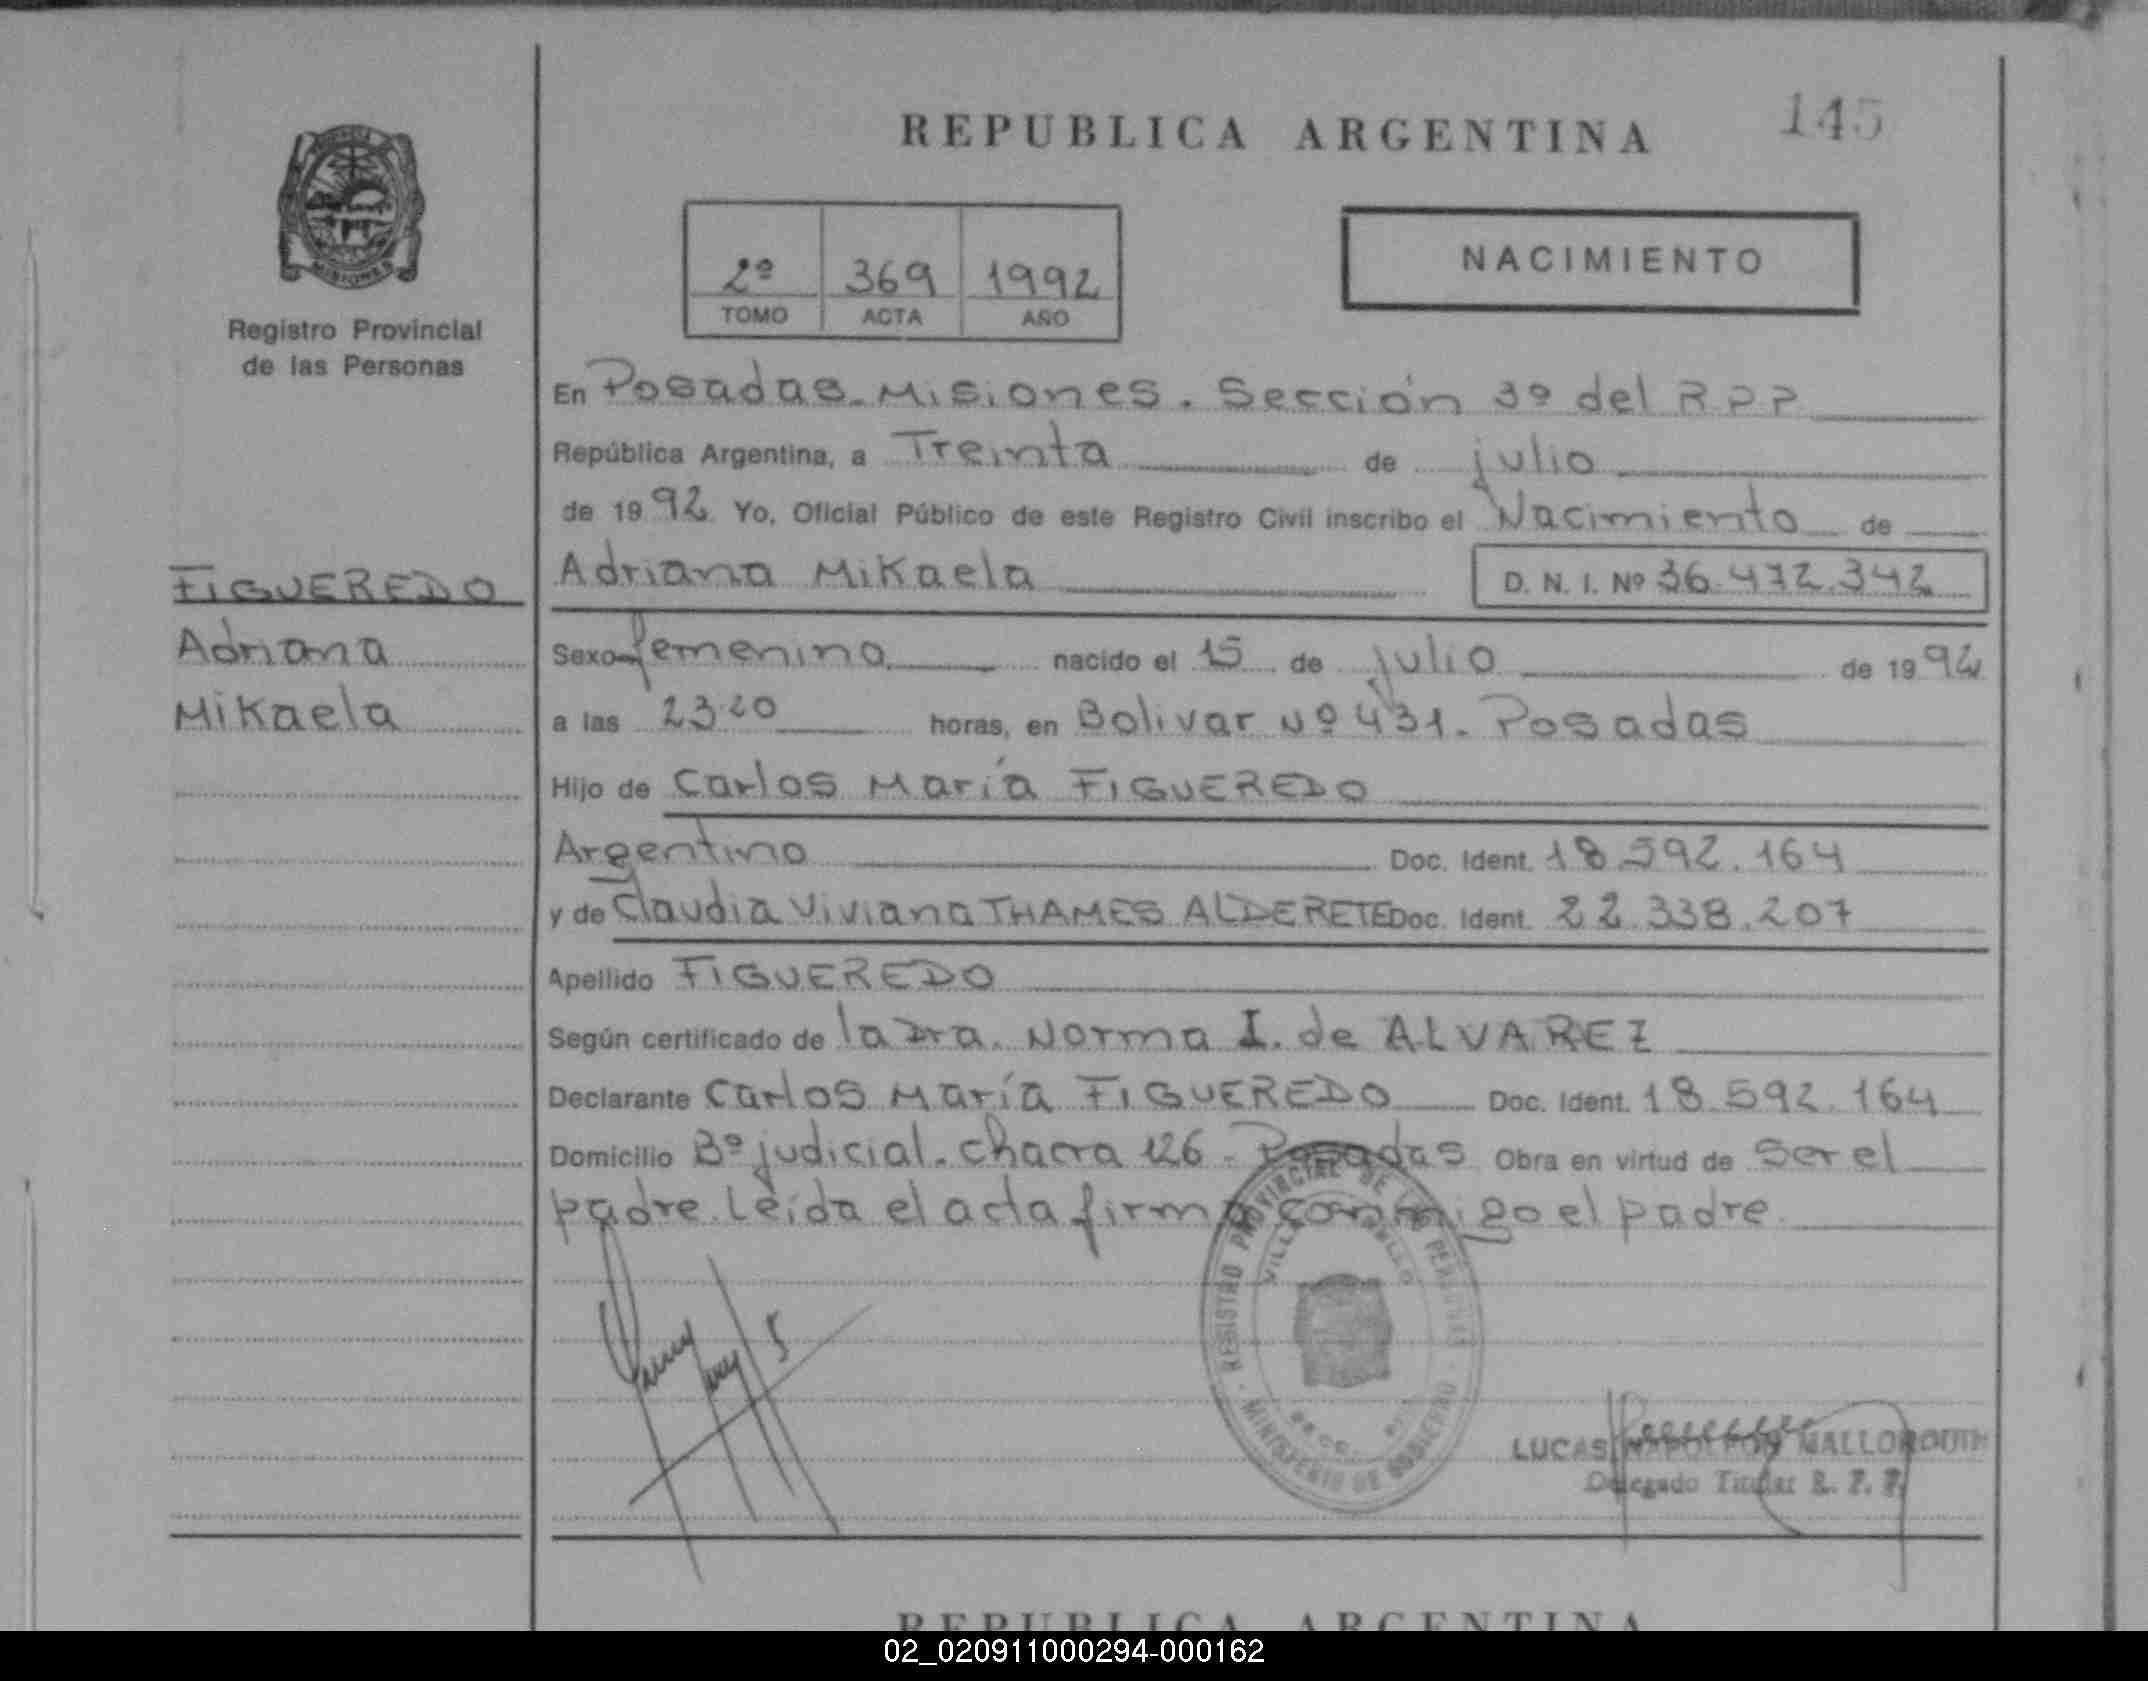 REPUBLICA ARGENTINA
145
MISIONES
Registro Provincial
de las Personas
2º 369 1992
TOMO ACTA AÑO
NACIMIENTO
En Posadas. Misiones. Sección 3º del R P P
República Argentina, a Treinta de julio
de 1992 Yo, Oficial Público de este Registro Civil inscribo el Nacimiento de
Adriana Mikaela D. N. I. Nº 36.472.342
FIGUEREDO
Adriana
Mikaela
Sexo femenino nacido el 15 de julio de 1992
a las 23:20 horas, en Bolivar Nº 431. Posadas
Hijo de Carlos María FIGUEREDO
Argentino Doc. Ident. 18.592.164
y de Claudia Viviana THAMES ALDERETE Doc. Ident. 22.338.207
Apellido FIGUEREDO
Según certificado de la Dra. Norma I. de ALVAREZ
Declarante Carlos María FIGUEREDO Doc. Ident. 18.592.164
Domicilio Bº judicial. Chacra 126 - Posadas Obra en virtud de Ser el
padre. Leída el acta firma conmigo el padre.
REGISTRO PROVINCIAL DE LAS PERSONAS
MINISTERIO DE GOBIERNO
LUCAS NAPOLEON
Delegado Titular R. P. P.
REPUBLICA ARGENTINA
02_020911000294-000162